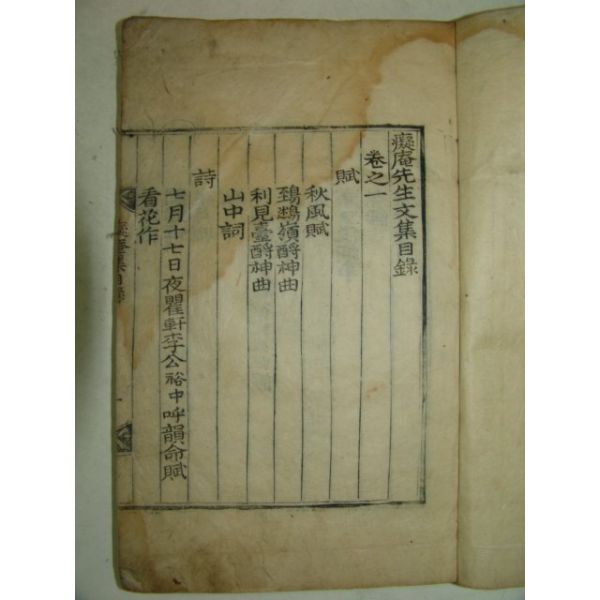 癡庵先生文集目錄
卷之一
賦
秋風賦
鵄鵂嶺酹神曲
利見臺酹神曲
山中詞
詩
七月十七日夜瞿軒李公裕中呼韻命賦
看花作